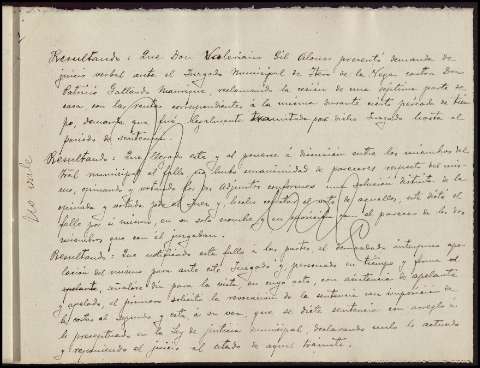 Resultando: Que Don Valeriano Gil Alonso presentó demanda de
juicio verbal ante el Juzgado Municipal de Itero de la Vega contra Don
Patricio Gallardo Manrique, reclamando la cesión de una séptima parte de
casa con las rentas correspondientes á la misma durante cierto período de tiem-
po, demanda que fué legalmente tramitada por dicho Juzgado hasta el
período de sentencia.
Resultando: Que llegado este y al ponerse á discusión entre los miembros del
tribunal municipal el fallo no hubo unanimidad de pareceres respecto del mis-
mo, opinando y votando los dos Adjuntos conformes una solución distinta de la
opinada y votada por el Juez y hecho constar el voto de aquellos, este dictó el
fallo por si mismo, en su solo nombre y en oposición al parecer de los dos
miembros que con él juzgaban.
Resultando: Que notificado este fallo á las partes el demandado interpuso ape-
lación del mismo para ante este Juzgado y personado en tiempo y forma el
apelante, señalose dia para la vista, en cuyo acto, con asistencia de apelante
y apelado, el primero solicitó la revocación de la sentencia con imposición de
las costas al segundo y este á su vez, que se dicte sentencia con arreglo á
lo preceptuado en la Ley de justicia municipal, declarando nulo lo actuado
y reponiendo el juicio al estado de aquel trámite.
No vale